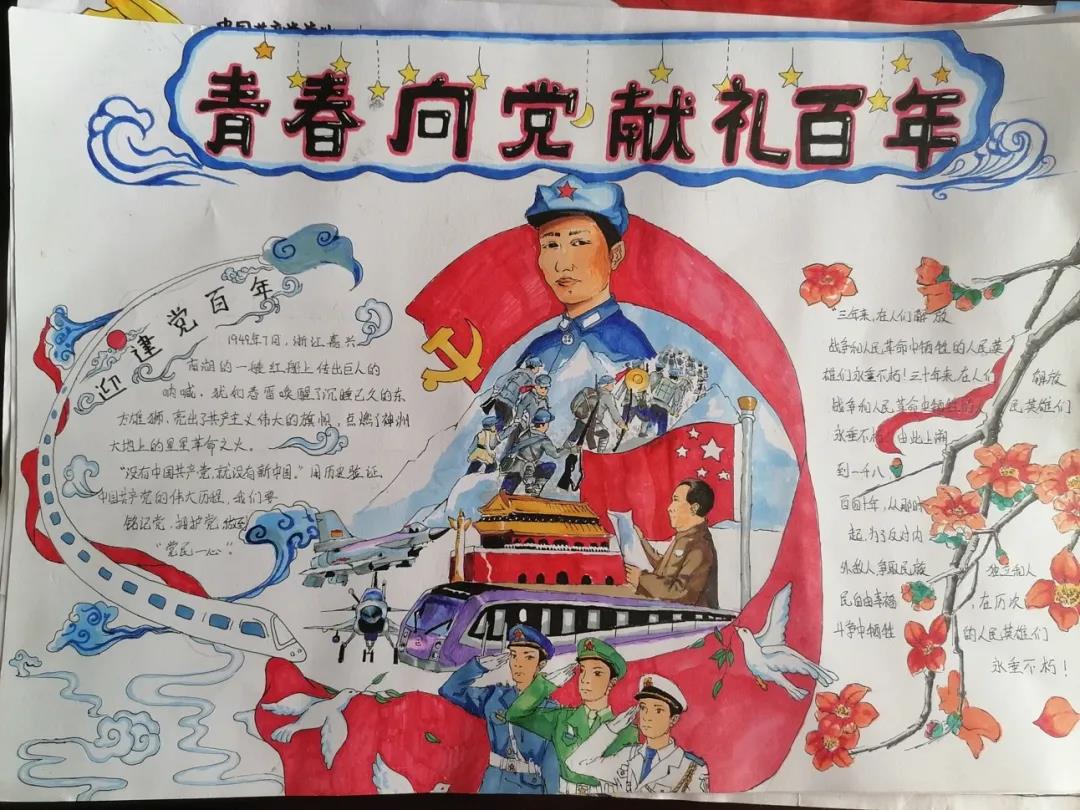 青春向党 献礼百年
迎建党百年
1949年7月,浙江嘉兴
南湖的一艘红船上传出巨人的
呐喊,犹如春雷唤醒了沉睡已久的东
方雄狮,亮出了共产主义伟大的旗帜,点燃了神州
大地上的星星革命之火。
"没有中国共产党,就没有新中国。"用历史验证
中国共产党的伟大历程,我们要
铭记党,拥护党,做到
"党民一心"。
三年来,在人们解放
战争和人民革命中牺牲的人民英
雄们永垂不朽!三十年来,在人们 解放
战争和人民革命中牺牲的人 民英雄们
永垂不朽 由此上溯
到一千八
百四十年,从那时
起,为了反对内
外敌人,争取民族 独立和人
民自由幸福 ,在历次
斗争中牺牲 的人民英雄们
永垂不朽!